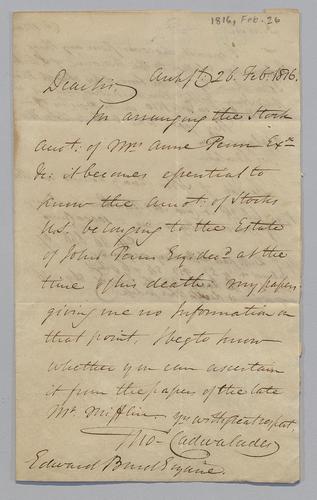 1816, Feb. 26
Arch St. 26. Feb. 1816.
Dear Sir.
In arranging the Stock
amot. of Mrs Anne Penn Exx
&c: it becomes essential to
know the amot. of Stocks
U.S. belonging to the Estate
of John Penn Esq: decd at the
time of his death: my papers
giving me no Information on
that point. I beg to know
whether you can ascertain
it from the papers of the late
Mr. Mifflin. Yrs with great respect
Tho Cadwalader
Edward Burd Esquire.